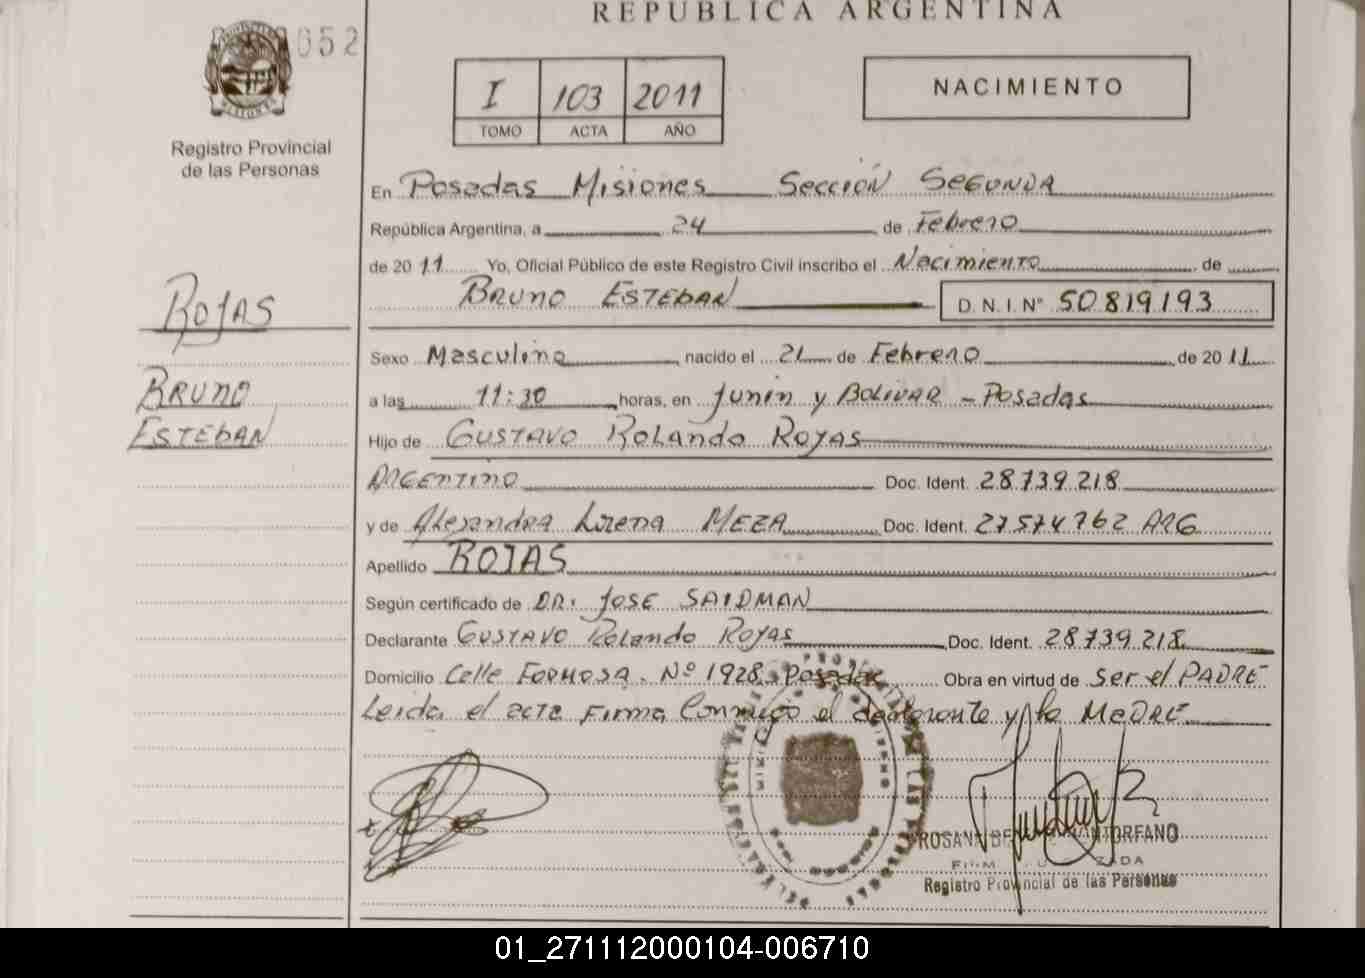 REPUBLICA ARGENTINA
052
Registro Provincial
de las Personas
I 103 2011
TOMO ACTA AÑO
NACIMIENTO
En Posadas Misiones Sección Segunda
República Argentina, a 24 de Febrero
de 2011 Yo, Oficial Público de este Registro Civil inscribo el Nacimiento de
Bruno Esteban D. N. I. Nº 50819193
Rojas
Bruno
Esteban
Sexo Masculino nacido el 21 de Febrero de 2011
a las 11:30 horas, en Junín y Bolivar - Posadas
Hijo de Gustavo Rolando Rojas
Argentino Doc. Ident. 28.739.218
y de Alejandra Lorena MEZA Doc. Ident. 27574762 ARG
Apellido ROJAS
Según certificado de DR. JOSE SAIDMAN
Declarante Gustavo Rolando Rojas Doc. Ident. 28739.218
Domicilio Calle Formosa Nº 1928 Posadas Obra en virtud de ser el PADRE
Leida el acta Firma Conmigo el declarante y la MADRE
ROSANA
Registro Provincial de las Personas
01_271112000104-006710